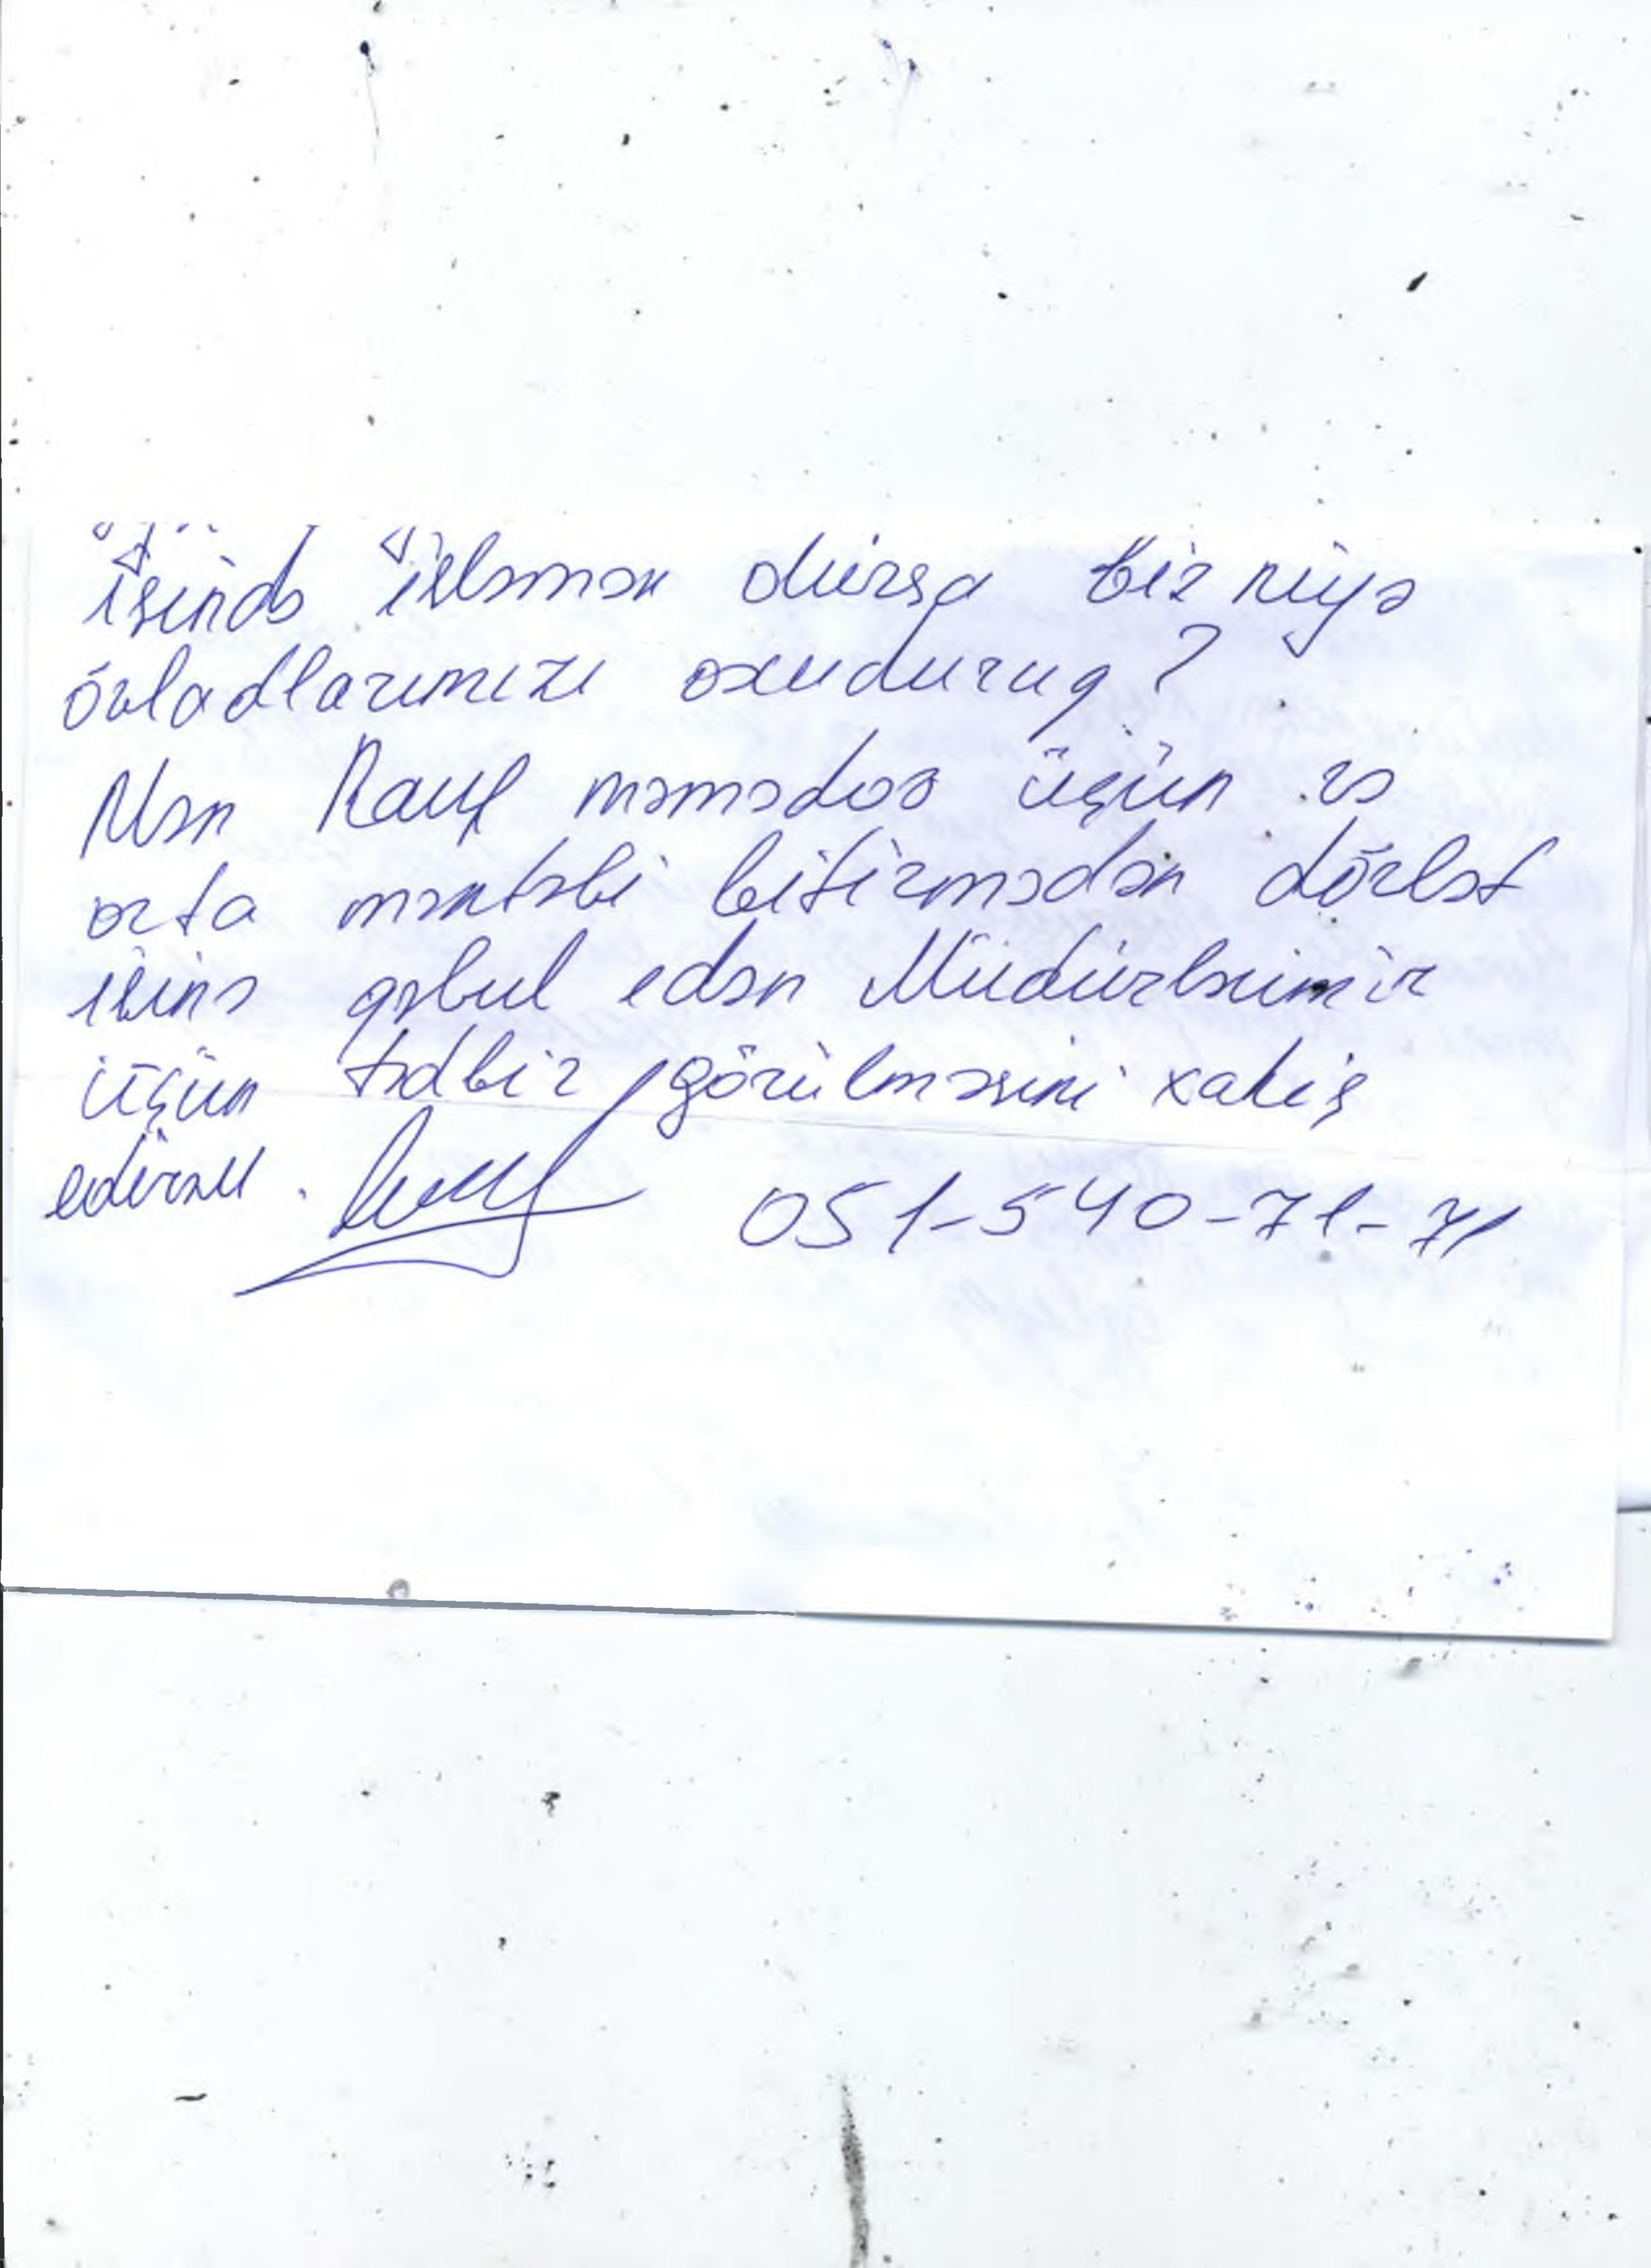 işində işləmək olursa biz niyə
övladlarımızı oxuduruq?
Mən Rauf məmədov üçün və
orta məktəbi bitirmədən dövlət
işinə qəbul edən Müdürlərimiz
üçün tədbir görülməsini xahiş
edirəm. 051-540-71-71